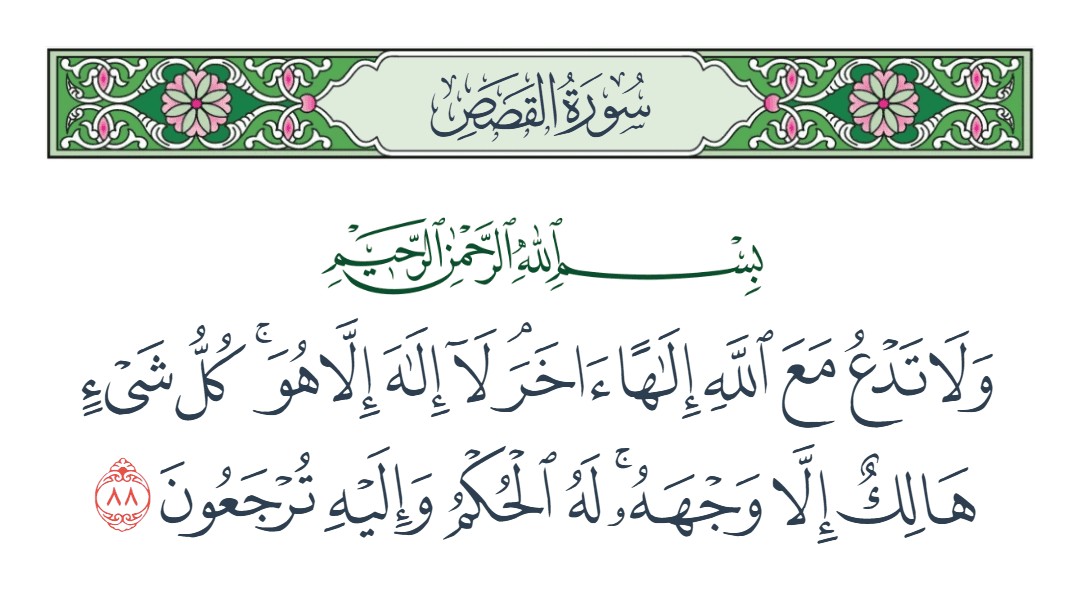 سُورَةُ القَصَصِ
بِسْمِ ٱللَّهِ ٱلرَّحْمَٰنِ ٱلرَّحِيمِ
وَلَا تَدْعُ مَعَ ٱللَّهِ إِلَٰهًا ءَاخَرَ ۘ لَآ إِلَٰهَ إِلَّا هُوَ ۚ كُلُّ شَىْءٍ
هَالِكٌ إِلَّا وَجْهَهُۥ ۚ لَهُ ٱلْحُكْمُ وَإِلَيْهِ تُرْجَعُونَ ٨٨